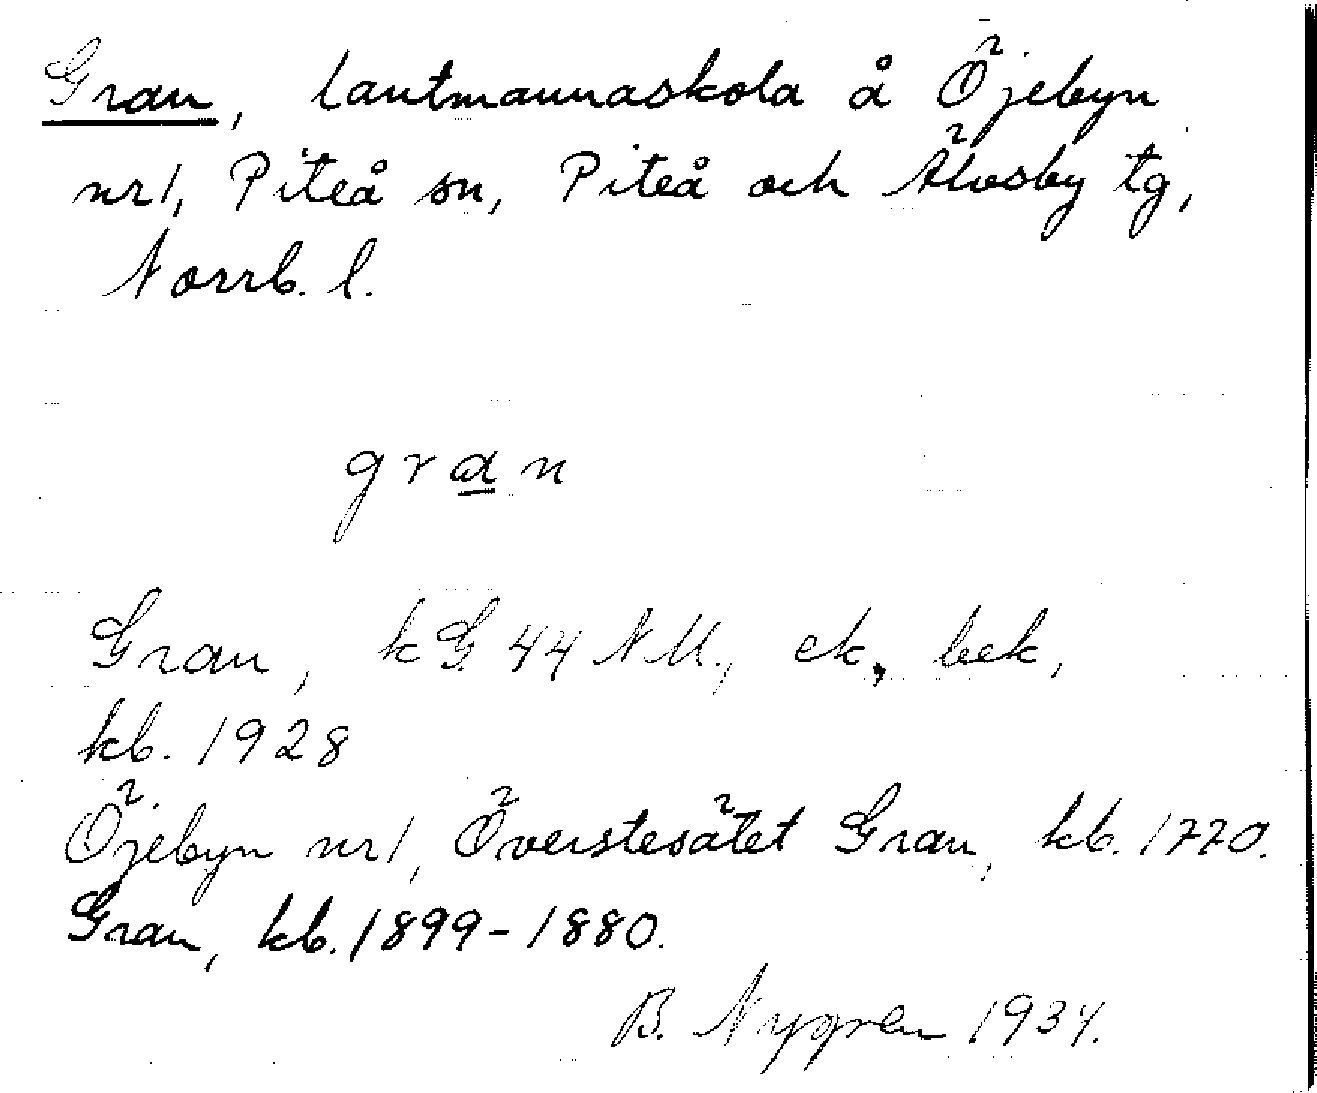 Gran, lantmannaskola å Öjebyn
nr 1, Piteå sn, Piteå och Älvsby tg,
Norrb. l.
gran
Gran, kG 44 NM., ek, bek,
kb. 1928
Öjebyn nr 1, Överstesätet Gran, kb. 1770.
Gran, kb. 1899-1880.
B. Nygren 1934.